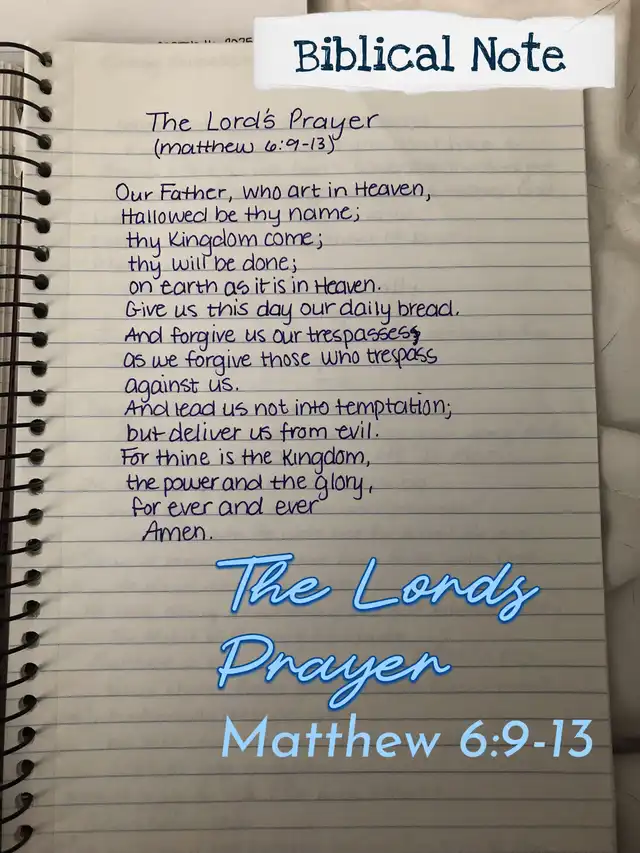 Biblical Note
The Lord's Prayer
(matthew 6:9-13)
Our Father, who art in Heaven,
Hallowed be thy name;
thy Kingdom come;
thy will be done;
on earth as it is in Heaven.
Give us this day our daily bread.
And forgive us our trespasses,
as we forgive those who trespass
against us.
And lead us not into temptation;
but deliver us from evil.
For thine is the Kingdom,
the power and the glory,
for ever and ever
Amen.
The Lords
Prayer
Matthew 6:9-13